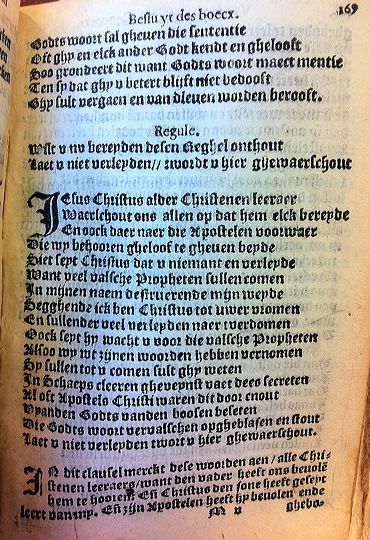 Besluyt des boecx. 169
Godts woort sal gheven die sententie
Oft ghy en elck ander Godt kendt en ghelooft
Soo grondeert dit want Godts woort maect mentie
Ten sy dat ghy u betert blijft niet bedooft
Ghy sult vergaen en van dieven worden berooft.
Regule.
Wilt u nu bereyden desen Reghel onthout
Laet u niet verleyden// twordt u hier ghewaerschout
IEsus Christus alder Christenen leeraer
Waerschout ons allen op dat hem elck bereyde
En oock daer naer die Apostelen voorwaer
Die wy behooren gheloof te gheven beyde
Siet seyt Christus dat u niemant en verleyde
Want veel valsche Propheten sullen comen
In mijnen naem destruerende mijn weyde
Segghende ick ben Christus tot uwer vromen
En sullender veel verleyden naer tverdomen
Oock seyt hy wacht u voor die valsche Propheten
Alsoo wy wt zijnen woorden hebben vernomen
Sy sullen tot u comen sulc ghy weten
In Schaeps cleeren gheveynst vaet dees secreten
Al oft Apostels Christi waren dit door cnout
Vyanden Godts vanden boosen beseten
Die Godts woort vervalschen opgheblasen en stout
Laet u niet verleyden twort u hier ghewaerschout.
IN dit clausel merckt dese woorden aen/ alle Chri-
stenen leeraers/ want den vader heeft ons bevolē
hem te hooren. Eñ Christus der sone heeft geseyt
leert van my. Eñ zijn Apostelen heeft hy bevolen ende
M v ghebo-